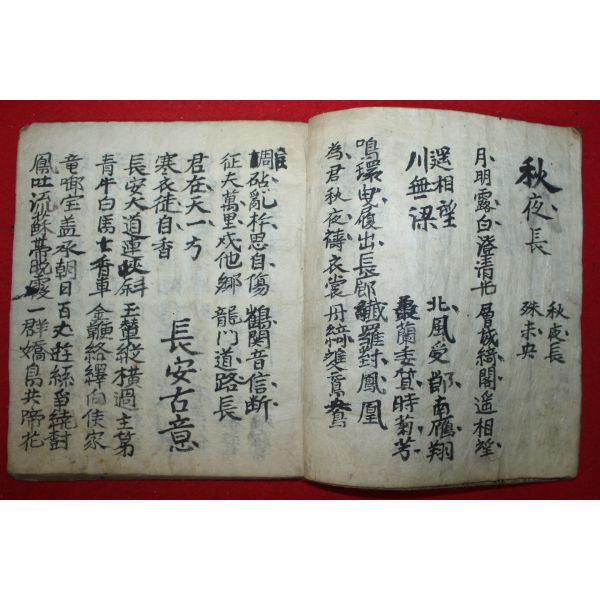 秋夜長
秋夜長
殊未央
月明露白澄清光 層城綺閣遙相望
遙相望 北風受節南雁翔
川無梁 蘭委質時菊芳
鳴環曳履出長郎 纖羅對鳳凰
為君秋夜擣衣裳 丹綺雙鴛鴦
調砧亂杵思自傷 鶴関音信断
征夫萬里戍他鄉 龍門道路長
君在天一方
寒衣徒自香
長安古意
長安大道連狹斜 玉輦縱橫過主第
青牛白馬七香車 金鞭絡繹向侯家
竜啣宝盖承朝日 百丈遊絲爭繞樹
鳳吐流蘇帶晚霞 一群嬌鳥共啼花